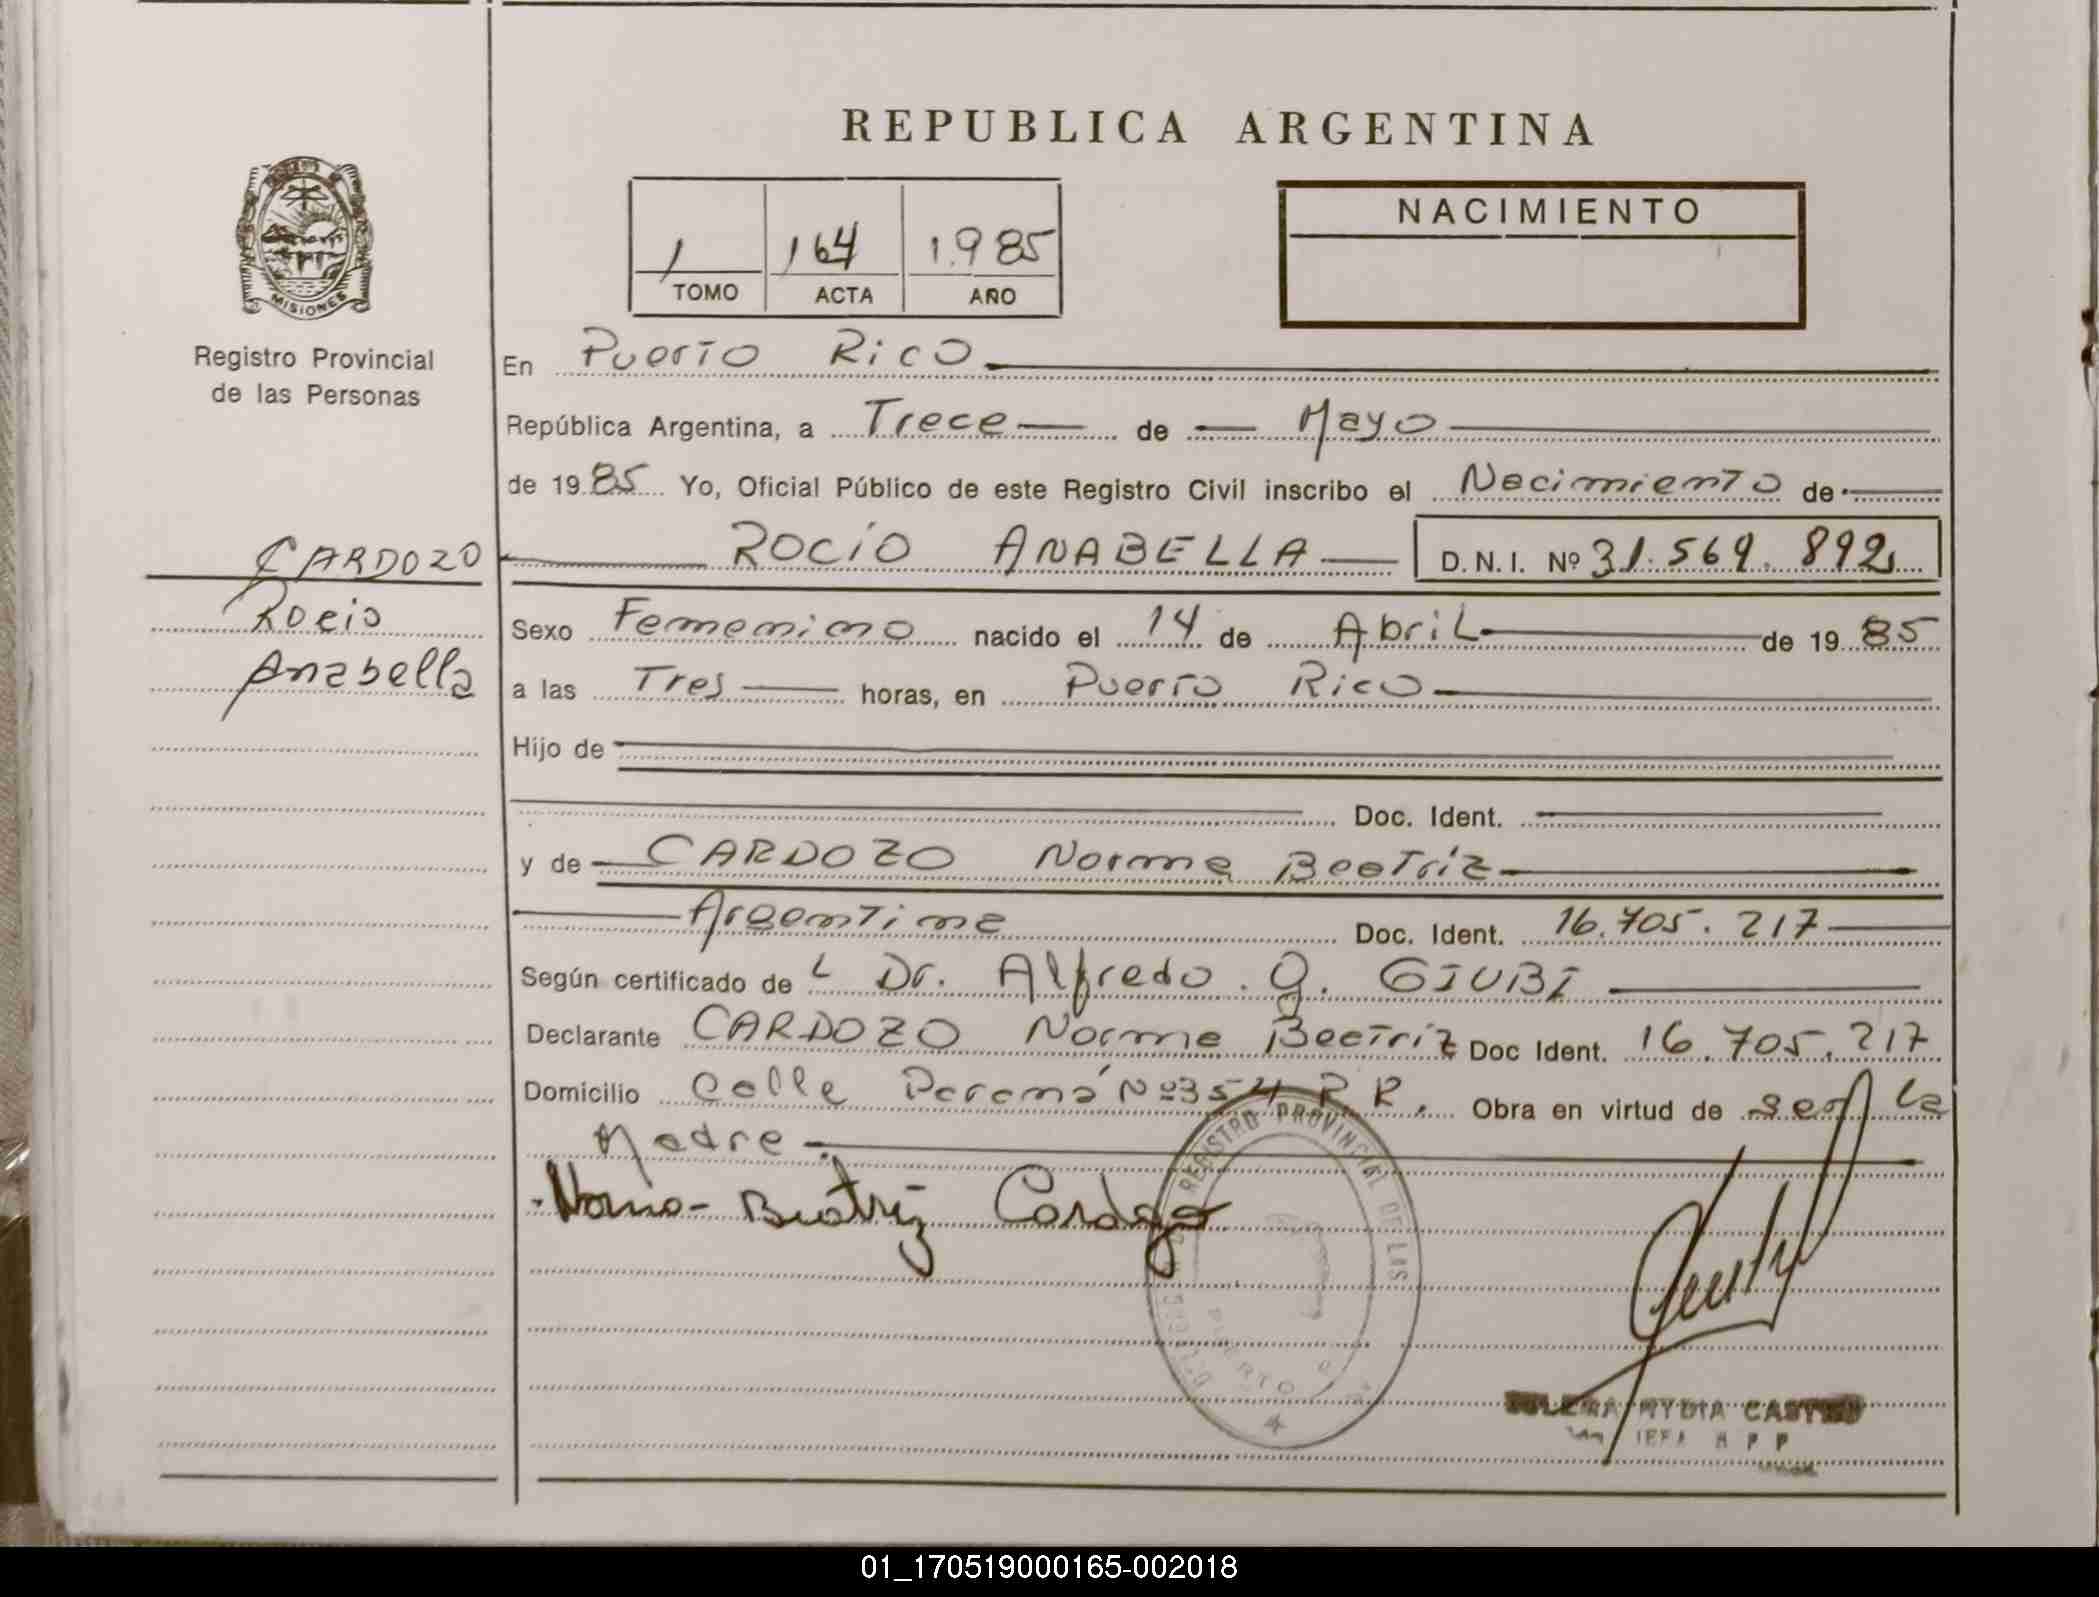 REPUBLICA ARGENTINA
NACIMIENTO
1 164 1.985
TOMO ACTA AÑO
MISIONES
Registro Provincial
de las Personas
En Puerto Rico
República Argentina, a Trece de Mayo
de 19 85 Yo, Oficial Público de este Registro Civil inscribo el Nacimiento de
CARDOZO
Rocio
Anabella
ROCIO ANABELLA D.N.I. Nº 31.569.892
Sexo Femenino nacido el 14 de Abril de 19 85
a las Tres horas, en Puerto Rico
Hijo de
Doc. Ident.
y de CARDOZO Norma Beatriz
Argentina Doc. Ident. 16.705.217
Según certificado de L Dr. Alfredo . O. GIUBI
Declarante CARDOZO Norma Beatriz Doc Ident. 16.705.217
Domicilio Calle Paraná Nº 354 P R. Obra en virtud de ser la
Madre
Norma Beatriz Cardozo
REGISTRO PROVINCIAL DE LAS
PUERTO
CASTRO
01_170519000165-002018